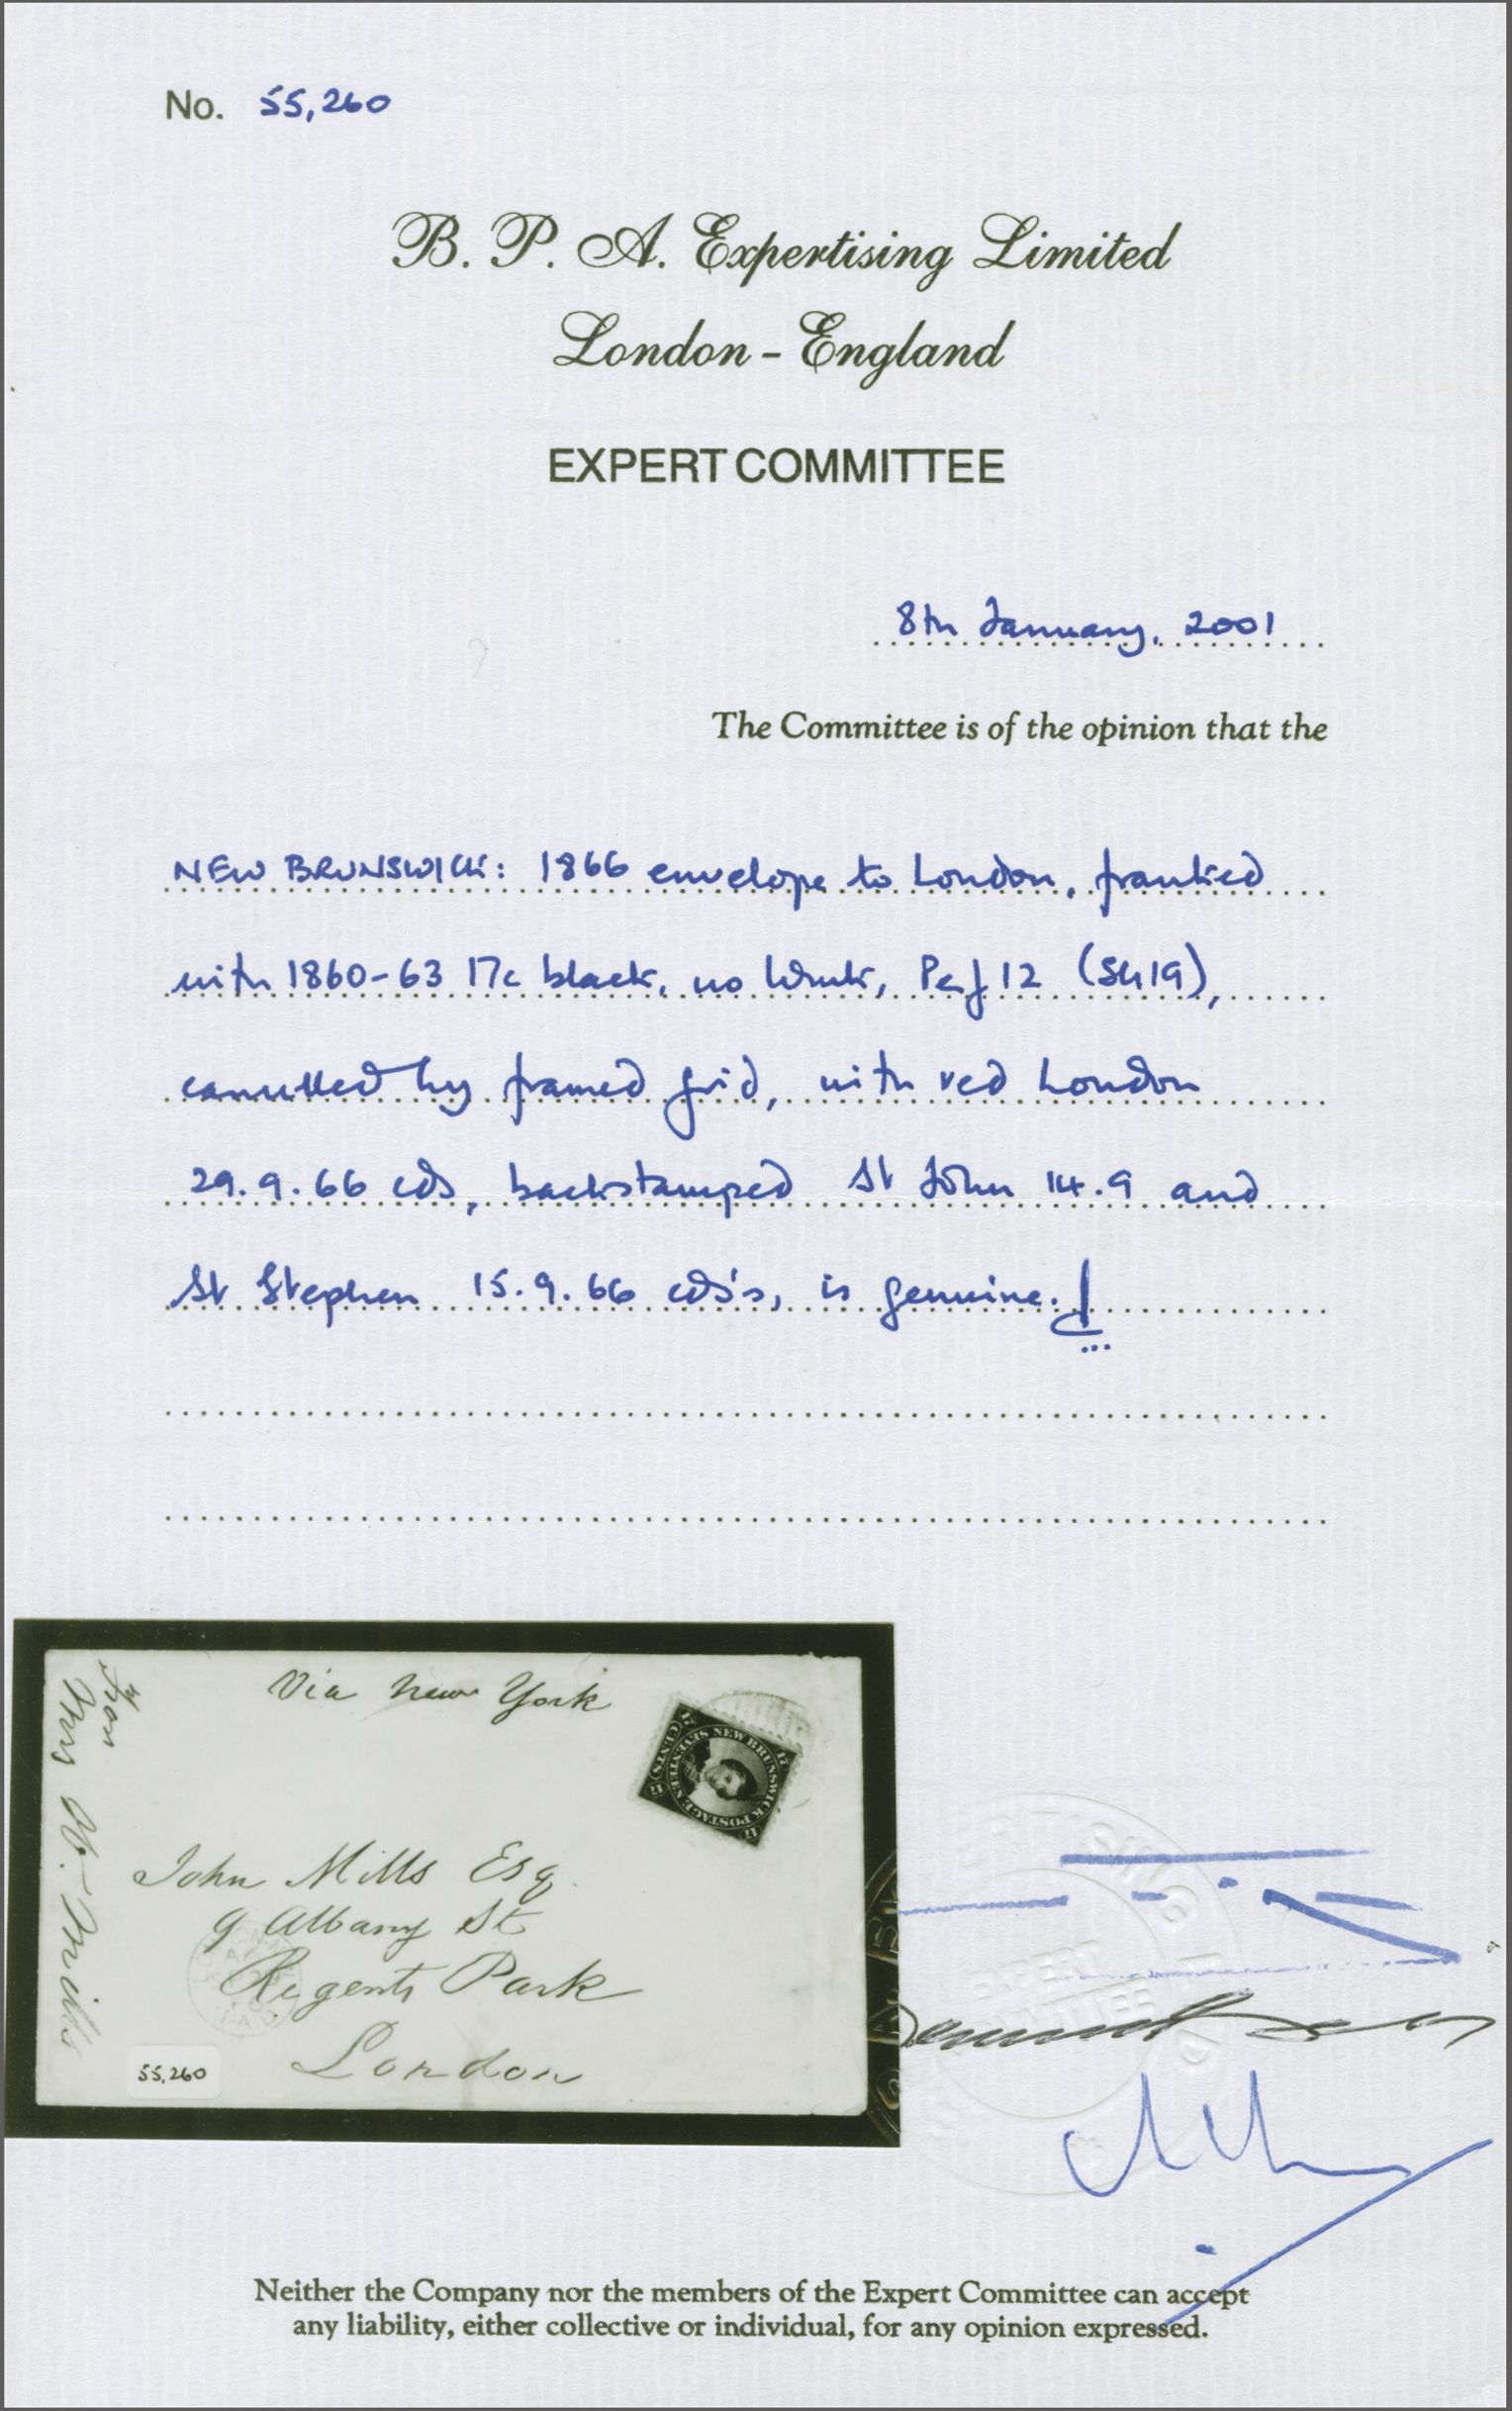 No. 55,260
B. P. A. Expertising Limited
London - England
EXPERT COMMITTEE
8th January, 2001
The Committee is of the opinion that the
NEW BRUNSWICK: 1866 envelope to London, franked
with 1860-63 17c black, no Wmk, Perf 12 (SG19),
cancelled by framed grid, with red London
29.9.66 cds, backstamped St John 14.9 and
St Stephen 15.9.66 cds's, is genuine.
Via New York
17 CENTS 17
NEW BRUNSWICK POSTAGE SEVENTEEN
17 17
John Mills Esq
9 Albany St
Regents Park
London
From
Mrs W. Mills
55,260
EXPERT
COMMITTEE
Neither the Company nor the members of the Expert Committee can accept
any liability, either collective or individual, for any opinion expressed.